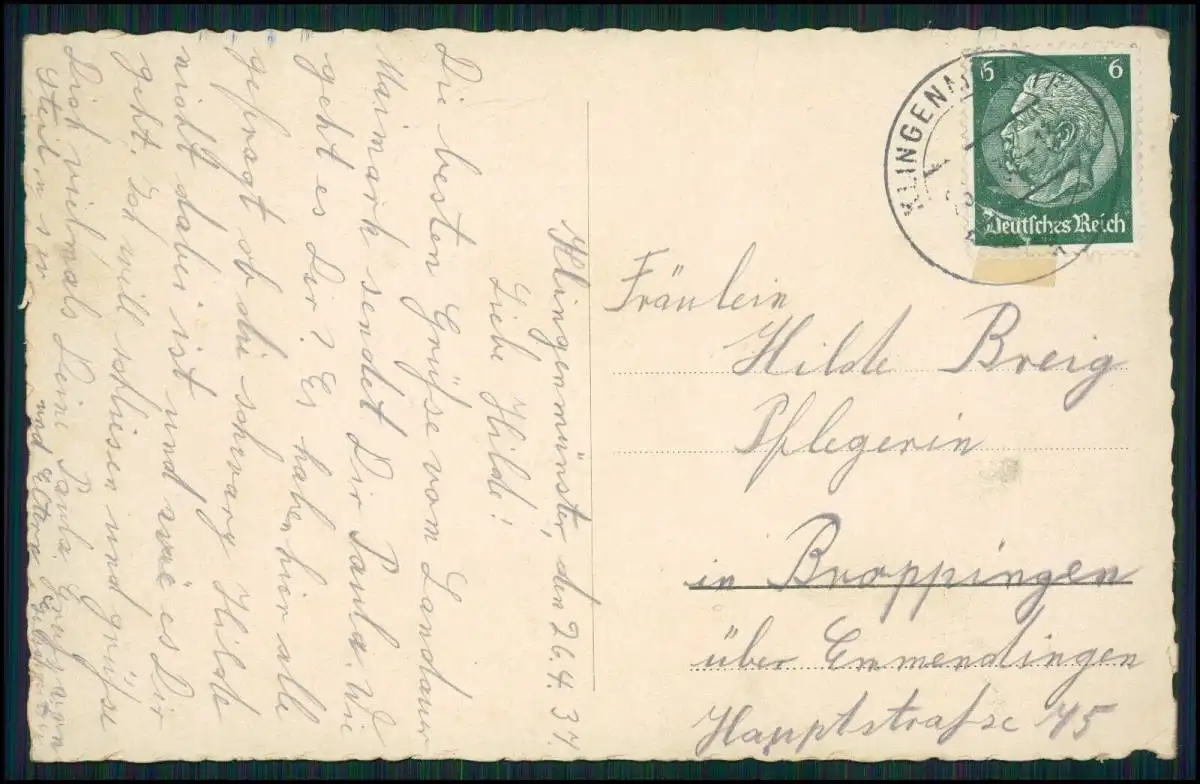 Klingenmünster, den 26.4.37.
Liebe Hilde!
Die besten Grüße vom Landauer
Maimark sendet Dir Paula. Wie
geht es Dir? Es haben hier alle
gefragt ob die schwarz Hilde
nicht dabei ist und wie es Dir
geht. Ich will schliesen und grüße
Dich vielmals Deine Paula. Gruß von
und Eltern
KLINGENMÜNSTER
6 6
Deutsches Reich
Fräulein
Hilde Breig
Pflegerin
in Broppingen
über Emmendingen
Hauptstraße 45